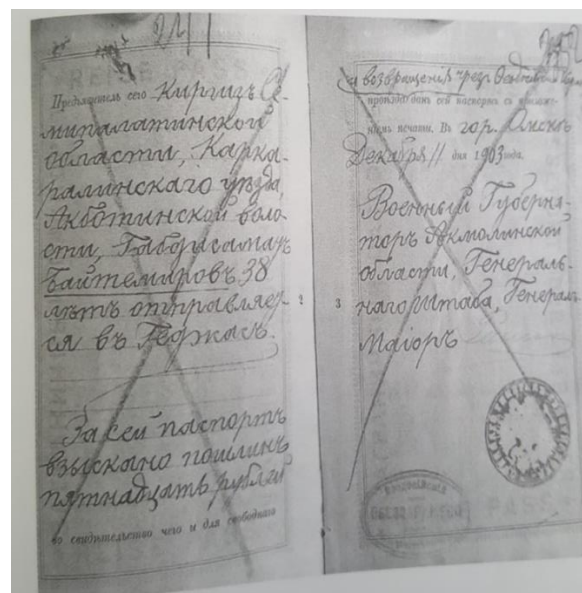 2411
Предъявитель сего Киргизъ Се-
мипалатинской
области, Карка-
ралинскаго уѣзда,
Акботинской воло-
сти, Габдисаматъ
Байтемировъ 38
лѣтъ отправляет-
ся въ Геджасъ.
За сей паспортъ
взыскано пошлинъ
пятнадцать рублей
во свидѣтельство чего и для свободнаго
2
и возвращенія чрезъ
проѣзда данъ сей паспортъ съ приложе-
ніемъ печати. Въ гор. Омскъ
Декабря 11 дня 1903 года.
Военный Губерна-
торъ Акмолинской
области, Генераль-
наго Штаба, Генералъ
Маіоръ
3